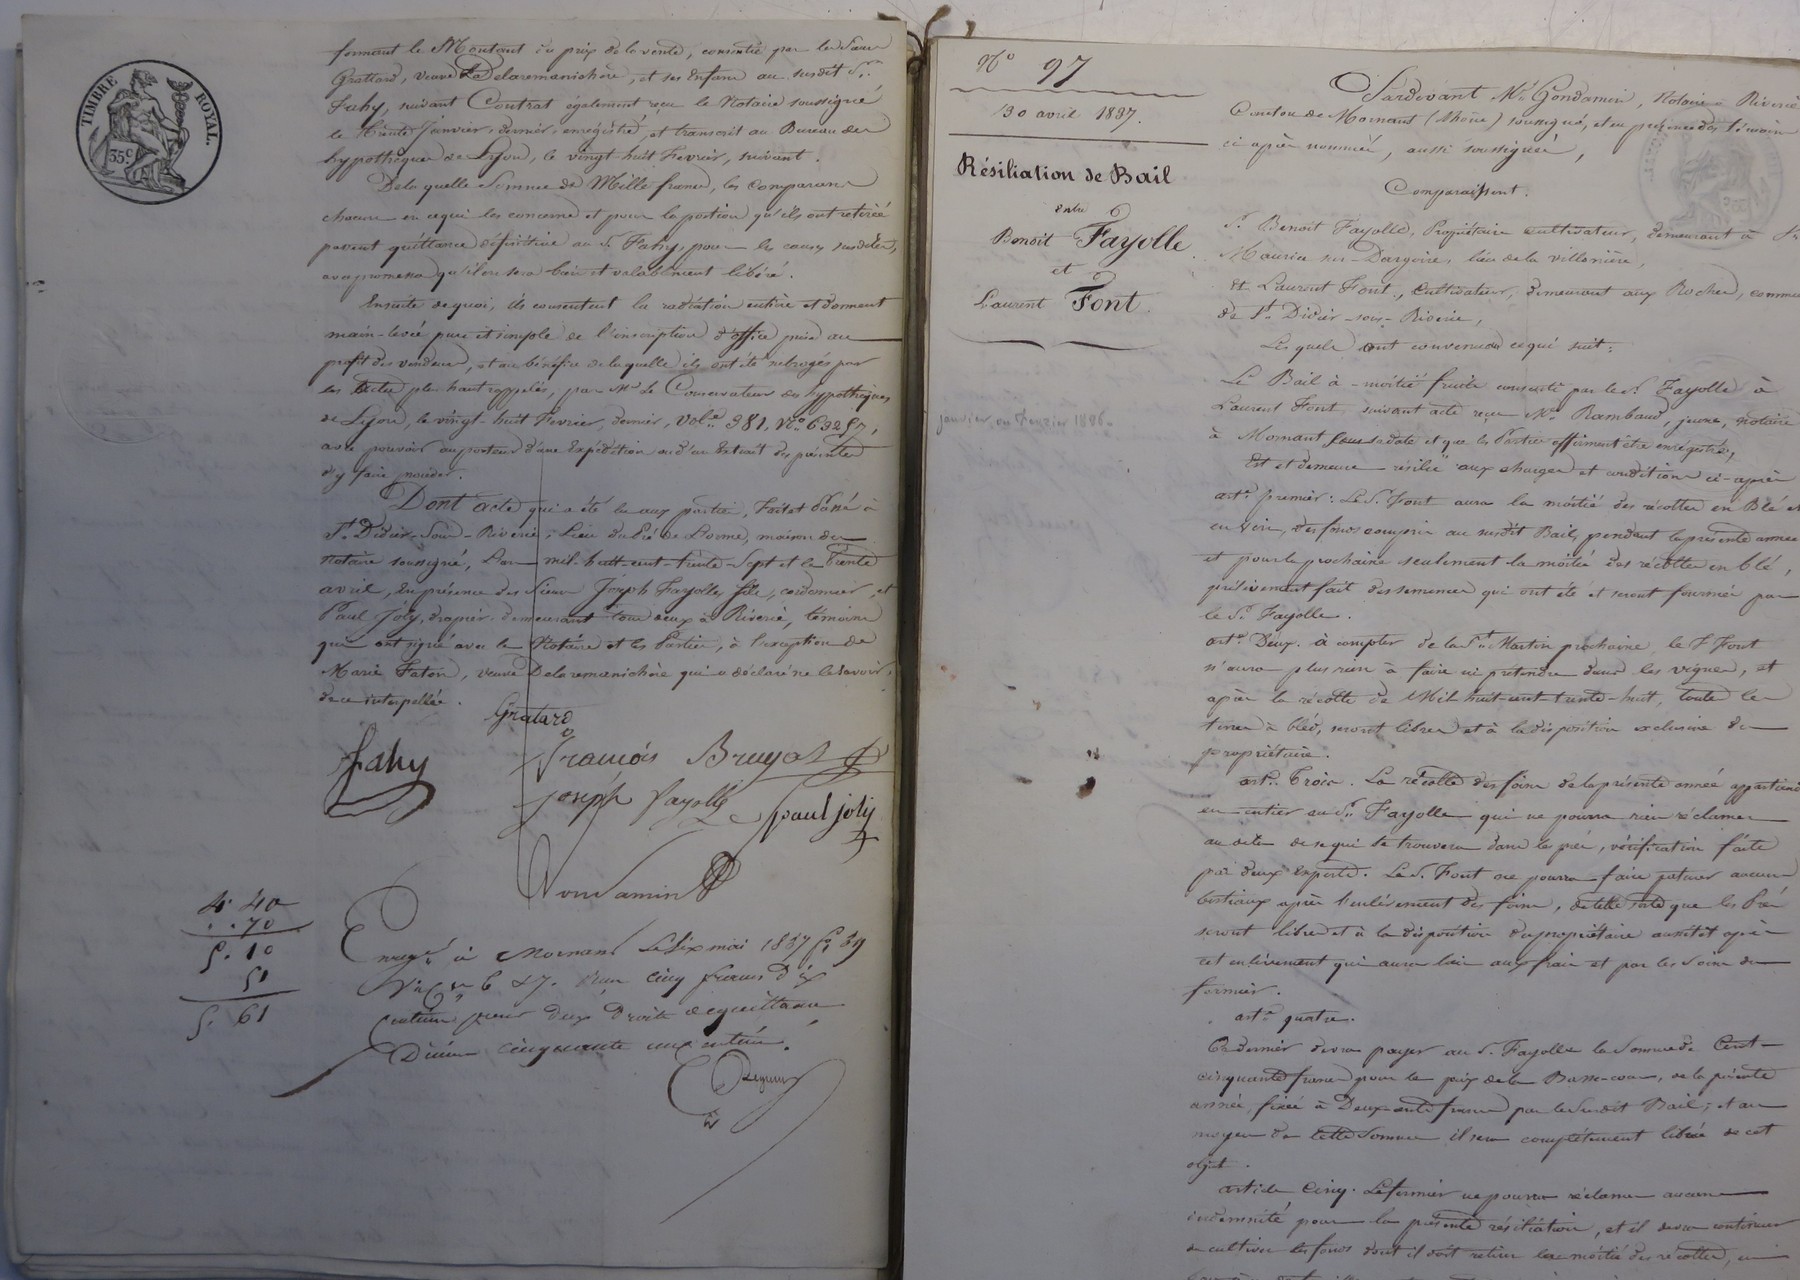 TIMBRE ROYAL.
35c
formant le Montant du prix de la vente, consentie par la dame
Grataré, veuve Delaremanichère, et ses Enfans au susdit Sr
Fahy, suivant Contrat également reçu le Notaire soussigné
le trente Janvier, dernier, enregistré, et transcrit au Bureau des
hypothèques de Lyon, le vingt huit Fevrier, suivant.
De la quelle Somme de Mille francs, les Comparans
chacun en ce qui les concerne et pour la portion qu'ils ont retirée
passent quittance définitive au Sr. Fahy, pour les causes susdites,
avec promesse qu'il en sera bien et valablement libéré.
Ensuite de quoi, ils consentent la radiation entière et donnent
main-levée pure et simple de l'inscription d'office prise au
profit des vendeurs, et au bénéfice de laquelle ils ont été subrogés par
les actes plus haut rappelés, par Mr. Le Conservateur des hypothèques,
de Lyon, le vingt-huit Fevrier, dernier, Vol. 381, No.
avec pouvoir au porteur d'une Expédition ou d'un Extrait des présentes
d'y faire procéder.
Dont acte qui a été lu aux parties, Fait et Passé à
St. Didier-Sous-Riverie, Lieu du Pré de Lorme, maison du
Notaire soussigné, L'an mil-huit-cent-trente-Sept et le Trente
avril, En présence des Sieurs Joseph Fayolle, fils, cordonnier, et
Paul Joly, drapier, demeurant tous deux à Riverie, témoins
qui ont signé avec le Notaire et les Parties, à l'exception de
Marie Faton, veuve Delaremanichère qui a déclaré ne le savoir,
de ce interpellée.
Grataré
Fahy
François Bruyas
Joseph fayolle
paul joly
Gondamin
4. 40
. . 70
5. 10
51
5. 61
Enregé à Mornant Le Six mai 1837 fo 39
Vo Ces 6 et 7. Reçu Cinq francs Dix
Centimes pour deux Droits de quittance
Dixième cinquante un centimes.
No 97
30 avril 1837.
Résiliation de Bail
entre
Benoit Fayolle
et
Laurent Font.
janvier ou Fevrier 1836.
Pardevant Me. Gondamin, Notaire à Riverie
Canton de Mornant (Rhône) soussigné, et en présence des témoins
ci après nommés, aussi soussignés,
Comparaissent.
Sr. Benoit Fayolle, Propriétaire cultivateur, demeurant à St.
Maurice sur-Dargoire, lieu de la Villonière,
Et Laurent Font, Cultivateur, demeurant aux Roches, commune
de St. Didier-sous-Riverie,
Lesquels sont convenus de ce qui suit:
Le Bail à-moitié fruits consenti par le Sr. Fayolle à
Laurent Font, suivant acte reçu Me. Rambaud, jeune, notaire
à Mornant sous sa date et que les Parties affirment être enregistré,
Est et demeure résilié aux charges et conditions ci-après
art. premier: Le Sr. Font aura la moitié des récoltes en Blé et
en vin, des fonds compris au susdit Bail, pendant la présente année
et pour la prochaine seulement la moitié des récoltes en blé,
prélèvement fait des semences qui ont été et seront fournies par
le Sr. Fayolle.
art. Deux. à compter de la St. Martin prochaine, le Sr Font
n'aura plus rien à faire ni prétendre dans les vignes, et
après la récolte de Mil-huit-cent-trente-huit, toutes les
terres à blé, seront libres et à la disposition exclusive du
propriétaire.
art. Trois. La récolte des foins de la présente année appartiendra
en entier au Sr. Fayolle qui ne pourra rien réclamer
au delà de ce qui se trouvera dans les prés, vérification faite
par deux Experts. Le Sr. Font ne pourra faire paturer aucuns
bestiaux après l'enlèvement des foins, de telle sorte que les Prés
seront libres et à la disposition du propriétaire aussitôt après
cet enlèvement qui aura lieu aux frais et par les soins du
fermier.
art. quatre.
Ce dernier devra payer au Sr. Fayolle la Somme de Cent-
cinquante francs pour le prix de la Basse-cour, de la présente
année, fixée à Deux cents francs par le Susdit Bail; et au
moyen de cette Somme il sera complètement libéré de cet
objet.
article Cinq. Le fermier ne pourra réclamer aucune
indemnité pour la présente résiliation, et il devra continuer
de cultiver les fonds dont il doit retirer la moitié des récoltes,